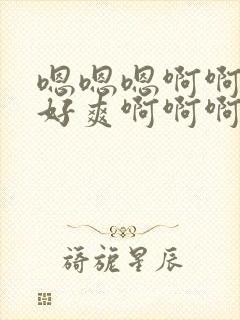 嗯嗯嗯啊啊
好爽啊啊啊
旖旎星辰